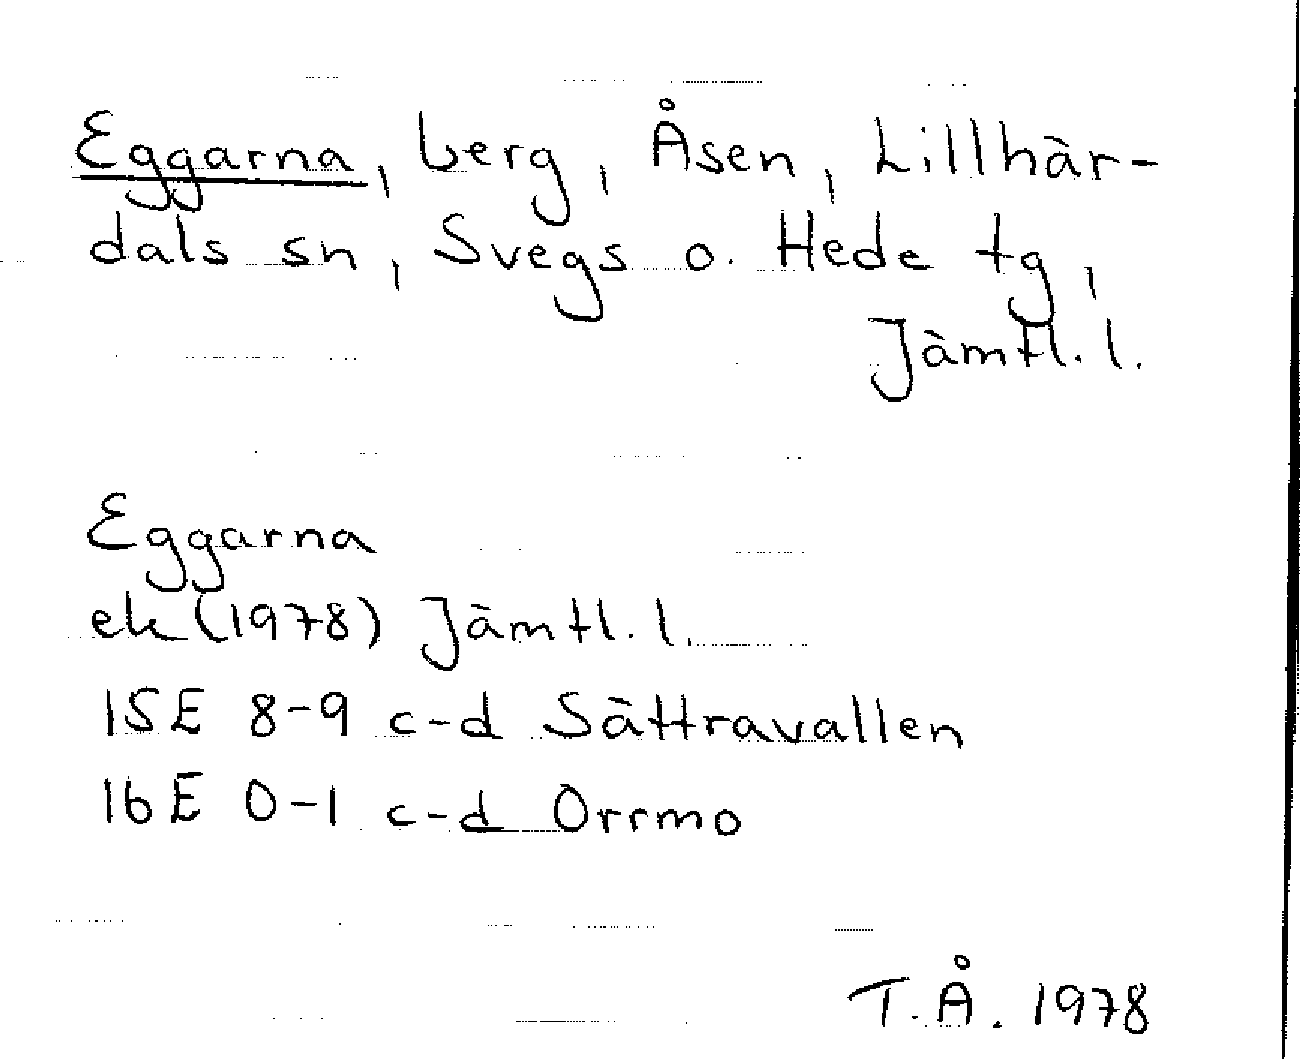 Eggarna, berg, Åsen, Lillhär-
dals sn, Svegs o. Hede tg,
Jämtl. l.
Eggarna
ek (1978) Jämtl. l.
15E 8-9 c-d Sättravallen
16E 0-1 c-d Orrmo
T.Å. 1978